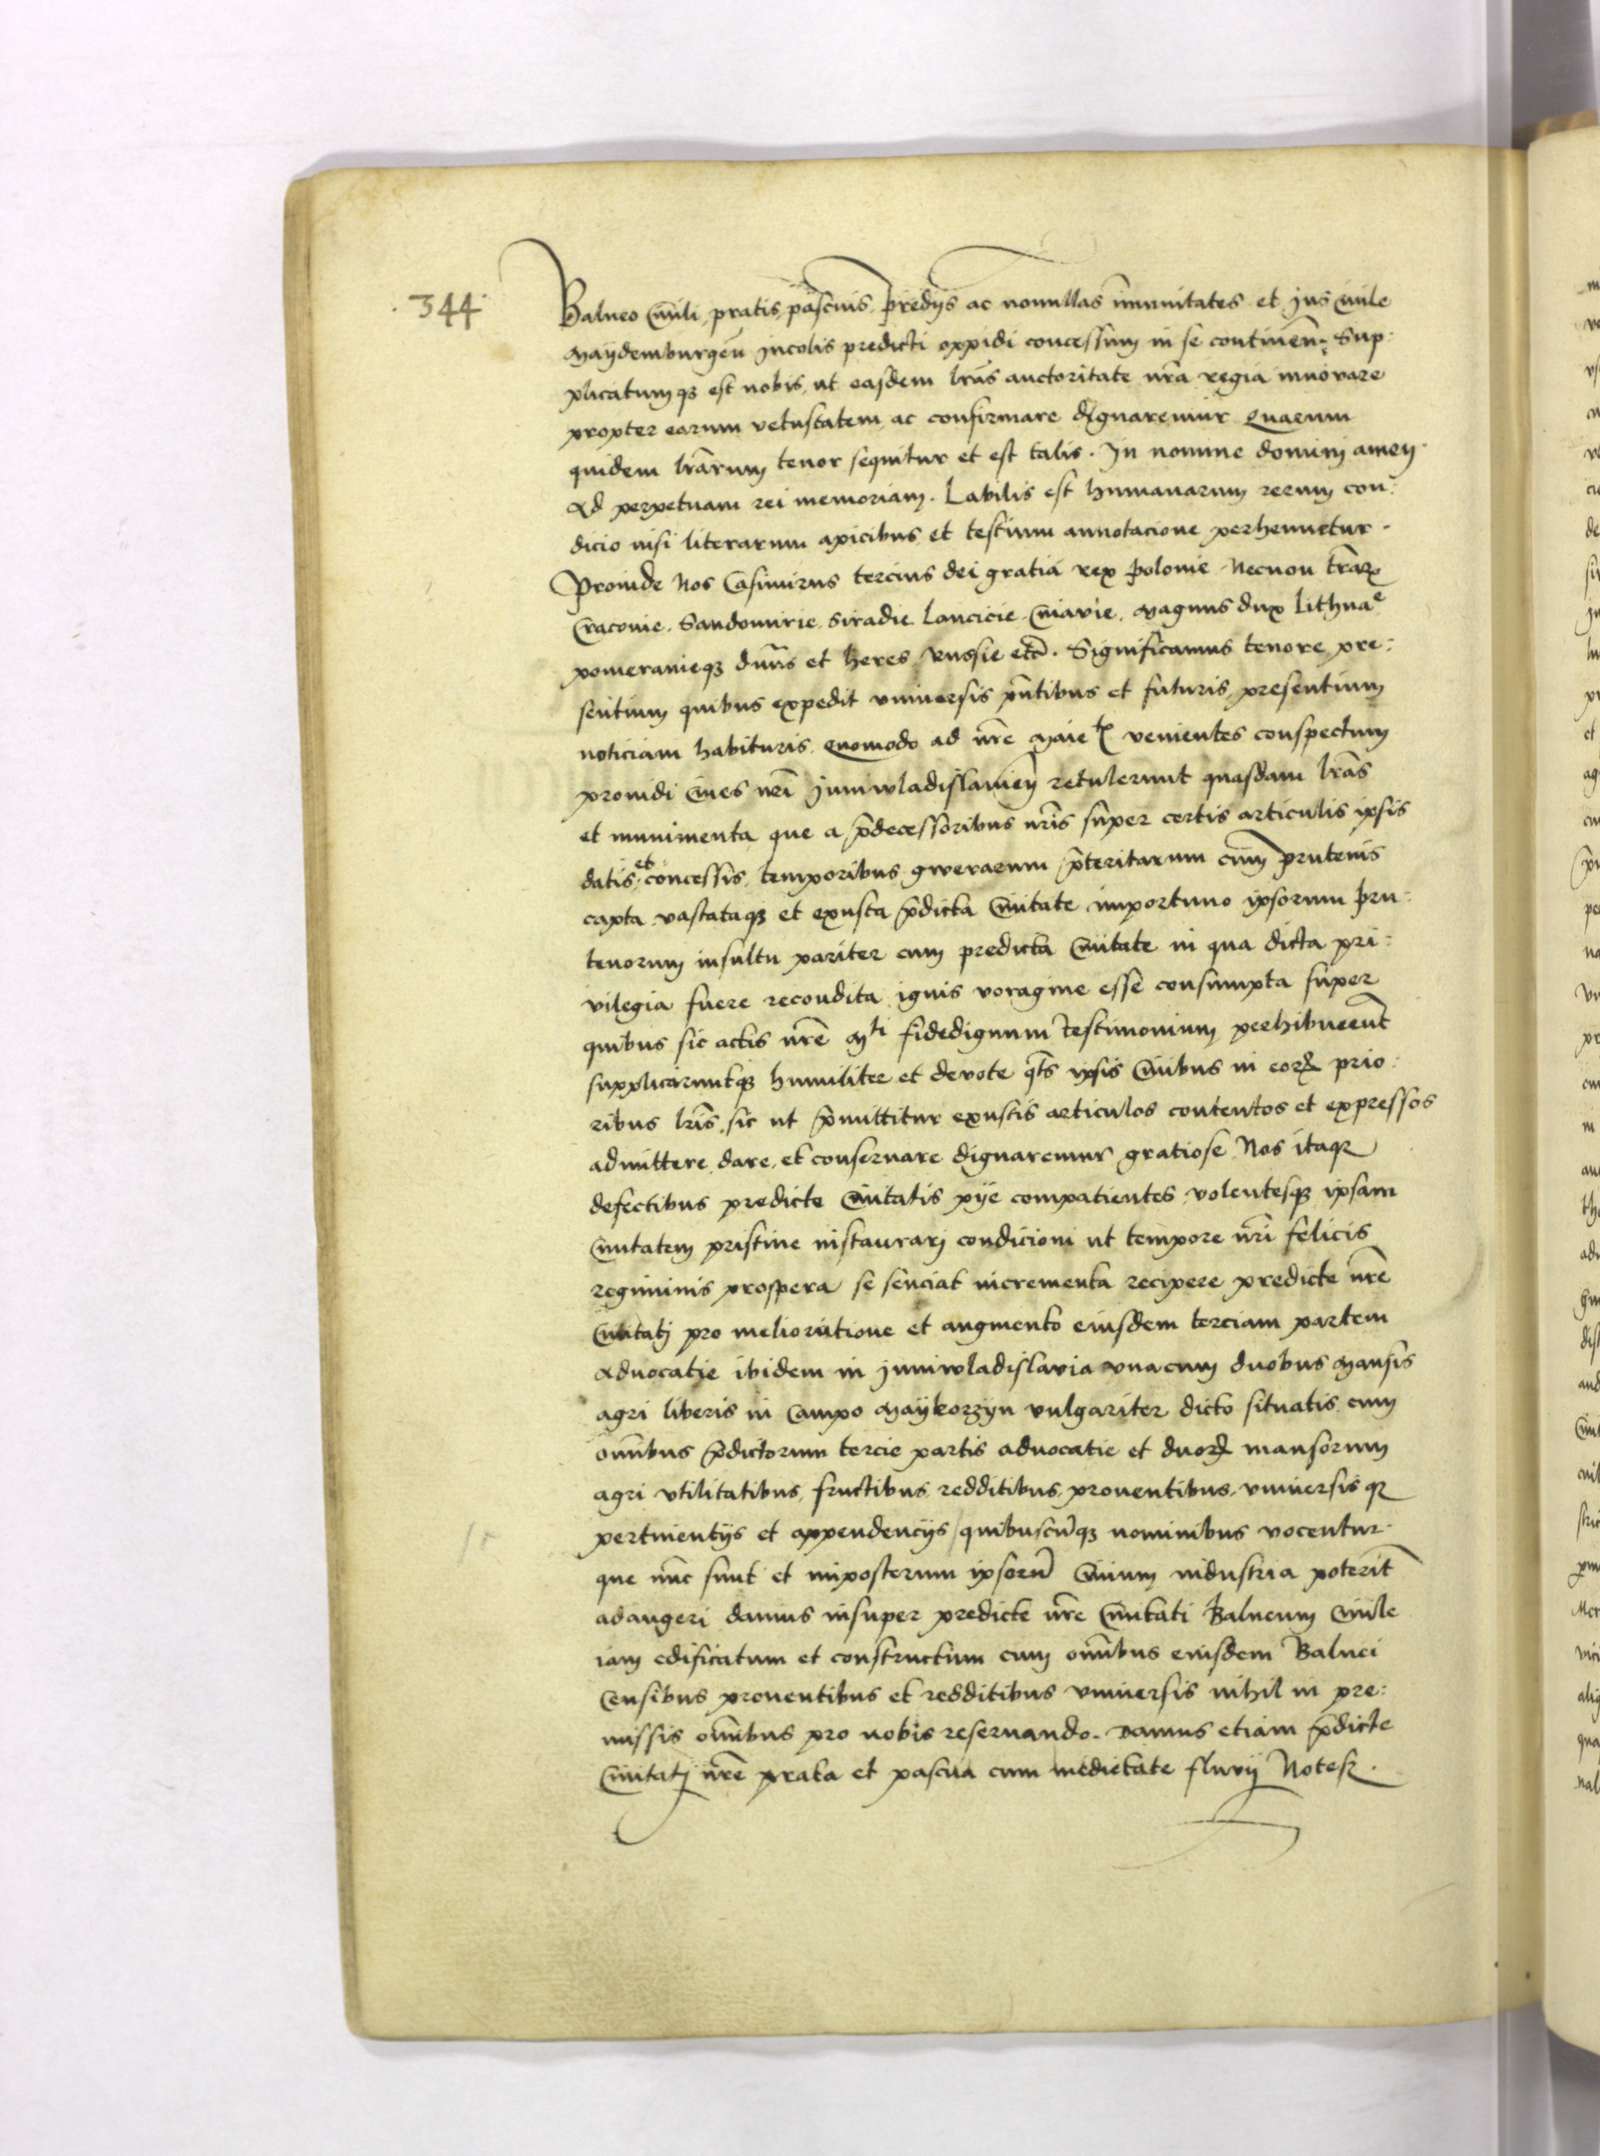 344
Balneo Ciuili, pratis, pascuis, predijs ac nonnullas im̄unitates et Jus Ciuile
Maÿdemburgen̄ Incolis predicti oppidi concessum in se continen̄: Sup:
plicatumqȝ est nobis, ut easdem lr̄as auctoritate nr̄a regia innovare
propter earum vetustatem, ac confirmare dignaremur Quarum
quidem lr̄arum tenor sequitur et est talis. In nomine domini amen
Ad perpetuam rei memoriam. Labilis est humanarum rerum con:
dicio nisi literarum apicibus et testium annotacione perhennetur.
Proinde Nos Casimirus tercius dei gratia rex Polonie Necnon tr̄arꝝ
Cracovie, Sandomirie, Siradie, Lancicie, Cuiavie, Magnus dux Lithuae
pomeranieqȝ dn̄us et heres, Russie etc̄. Significamus tenore pre:
sentium quibus expedit vniuersis pn̄tibus et futuris, presentium
noticiam habituris, Quomodo ad nr̄e Maietis venientes conspectum
prouidi Ciues nr̄i Juniwladislauien̄ retulerunt quasdam lr̄as
et munimenta que a p̄decessoribus nr̄is super certis articulis ipsis
datis et concessis, temporibus gwerrarum p̄teritarum cum prutenis
capta vastataqȝ et exusta p̄dicta Ciuitate, importuno ipsorum pru:
tenorum insultu pariter cum predicta Ciuitate in qua dicta pri:
vilegia fuere recondita ignis voragine esse consumpta super
quibus sic actis nr̄e Mti fidedignum testimonium perhibuerunt
supplicaruntqȝ humiliter et devote qts̄ ipsis Ciuibus in eorꝝ prio:
ribus lr̄is, sic ut p̄mittitur exustis articulos contentos et expressos
admittere, dare, et conseruare dignaremur gratiose, Nos itaqȝ
defectibus predicte Ciuitatis pÿe compatientes, volentesqȝ ipsam
Ciuitatem pristine instaurarj condicioni ut tempore nr̄i felicis
regiminis prospera se senciat incrementa recipere predicte nr̄e
Ciuitatj pro melioratione et augmento eiusdem terciam partem
Aduocatie ibidem in Juniwladislavia vnacum duobus mansis
agri liberis in Campo Maÿkorzyn vulgariter dicto situatis cum
om̄ibus p̄dictorum tercie partis aduocatie et duorꝝ mansorum
agri vtilitatibus, fructibus, redditibus, prouentibus, vniuersisqȝ
pertinentijs et appendencijs, quibuscūqȝ nominibus vocentur.
que nūc sunt et inposterum ipsorū Ciuium industria poterīt
adaugeri, damus insuper predicte nr̄e Ciuitati Balneum Ciuile
iam edificatum et constructum cum om̄ibus eiusdem Balnei
Censibus prouentibus et redditibus vniuersis nihil in pre:
missis om̄ibus pro nobis reseruando. Damus etiam p̄dicte
Ciuitatj nr̄e prata et pascua cum medietate fluvij Notesz.